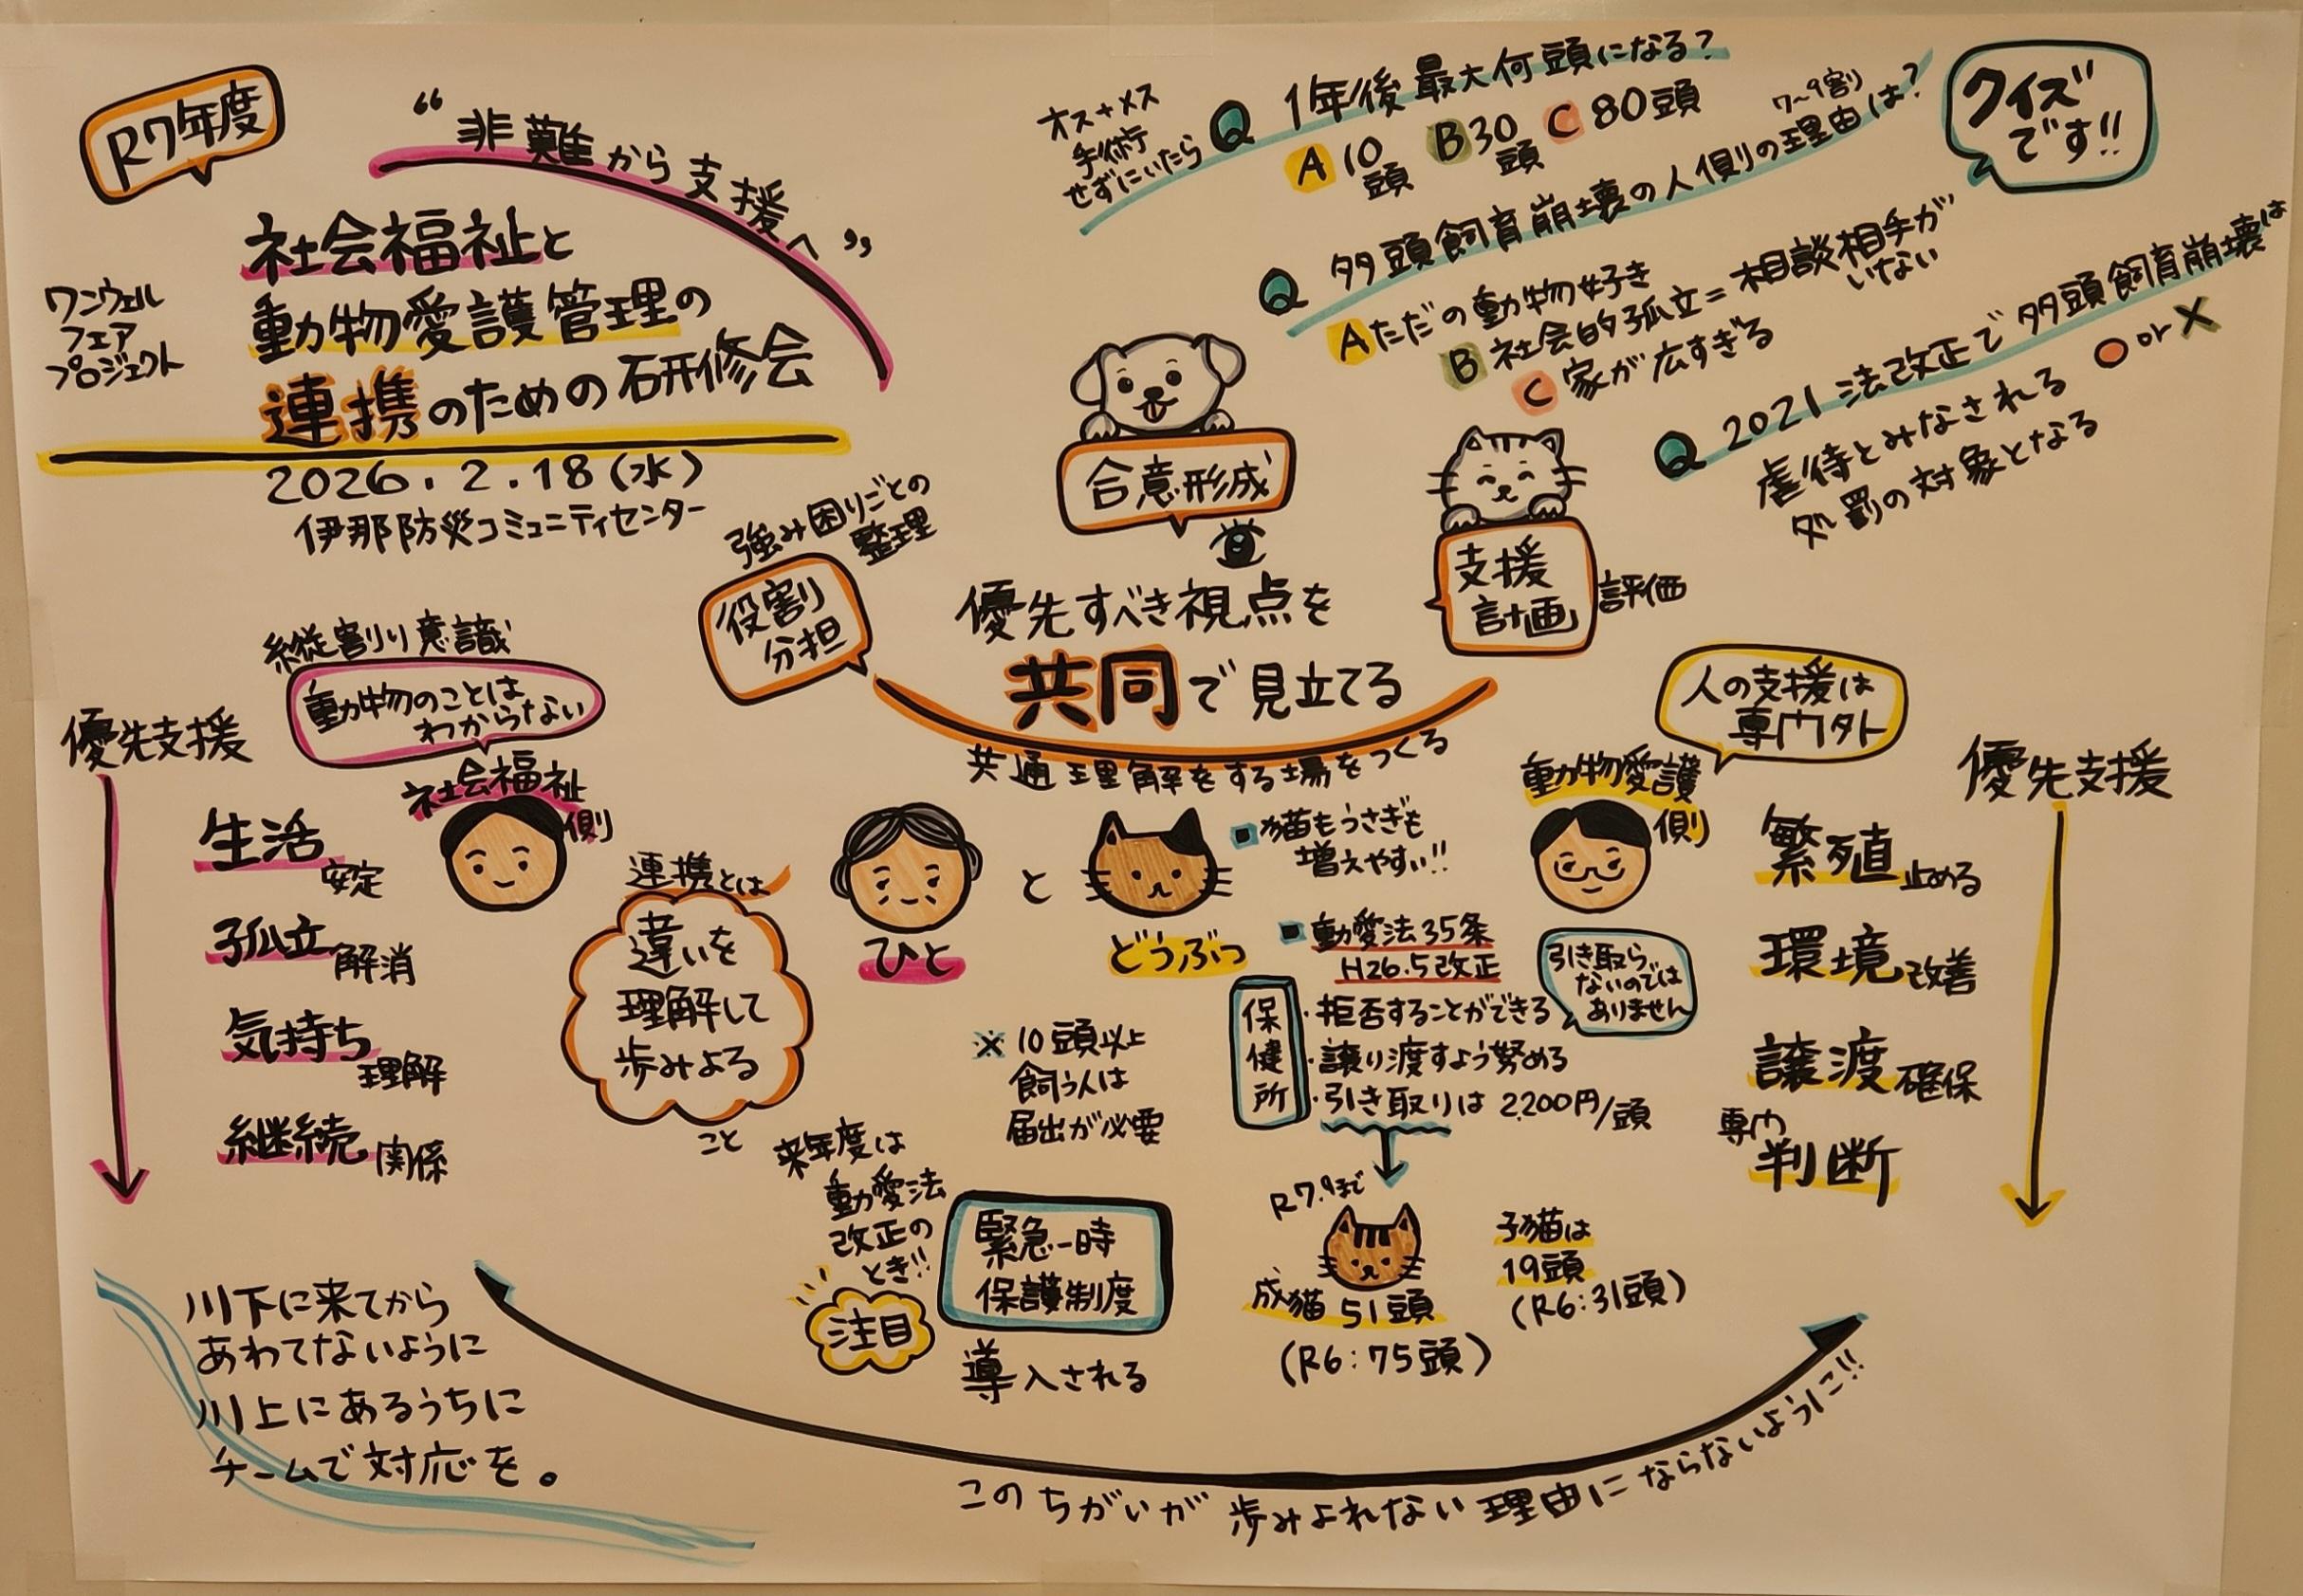 R7年度
“非難から支援へ”
社会福祉と
動物愛護管理の
連携のための研修会
ワンウェル
フェア
プロジェクト
2026.2.18(水)
伊那防災コミュニティセンター
クイズ
です!!
オス+メス
手術
せずにいたら
Q 1年後最大何頭になる?
A 10頭
B 30頭
C 80頭
7~9割
Q 多頭飼育崩壊の人側の理由は?
A ただの動物好き
B 社会的孤立=相談相手が
いない
C 家が広すぎる
Q 2021法改正で多頭飼育崩壊は
虐待とみなされる
処罰の対象となる
O or X
合意形成
支援
計画
評価
強み困りごとの
整理
役割
分担
優先すべき視点を
共同で見立てる
共通理解をする場をつくる
縦割り意識
動物のことは
わからない
社会福祉
側
優先支援
生活安定
孤立解消
気持ち理解
継続関係
連携とは
違いを
理解して
歩みよる
こと
ひと
と
どうぶつ
猫もうさぎも
増えやすい!!
動愛法35条
H26.5改正
保健所
・拒否することができる
・譲り渡すよう努める
・引き取りは2,200円/頭
引き取ら
ないのでは
ありません
人の支援は
専門外
動物愛護
側
優先支援
繁殖止める
環境改善
譲渡確保
専門
判断
※10頭以上
飼う人は
届出が必要
来年度は
動愛法
改正の
とき!!
注目
緊急一時
保護制度
導入される
R7.9まで
成猫 51頭
(R6:75頭)
子猫は
19頭
(R6:31頭)
川下に来てから
あわてないように
川上にあるうちに
チームで対応を。
このちがいが歩みよれない理由にならないように!!